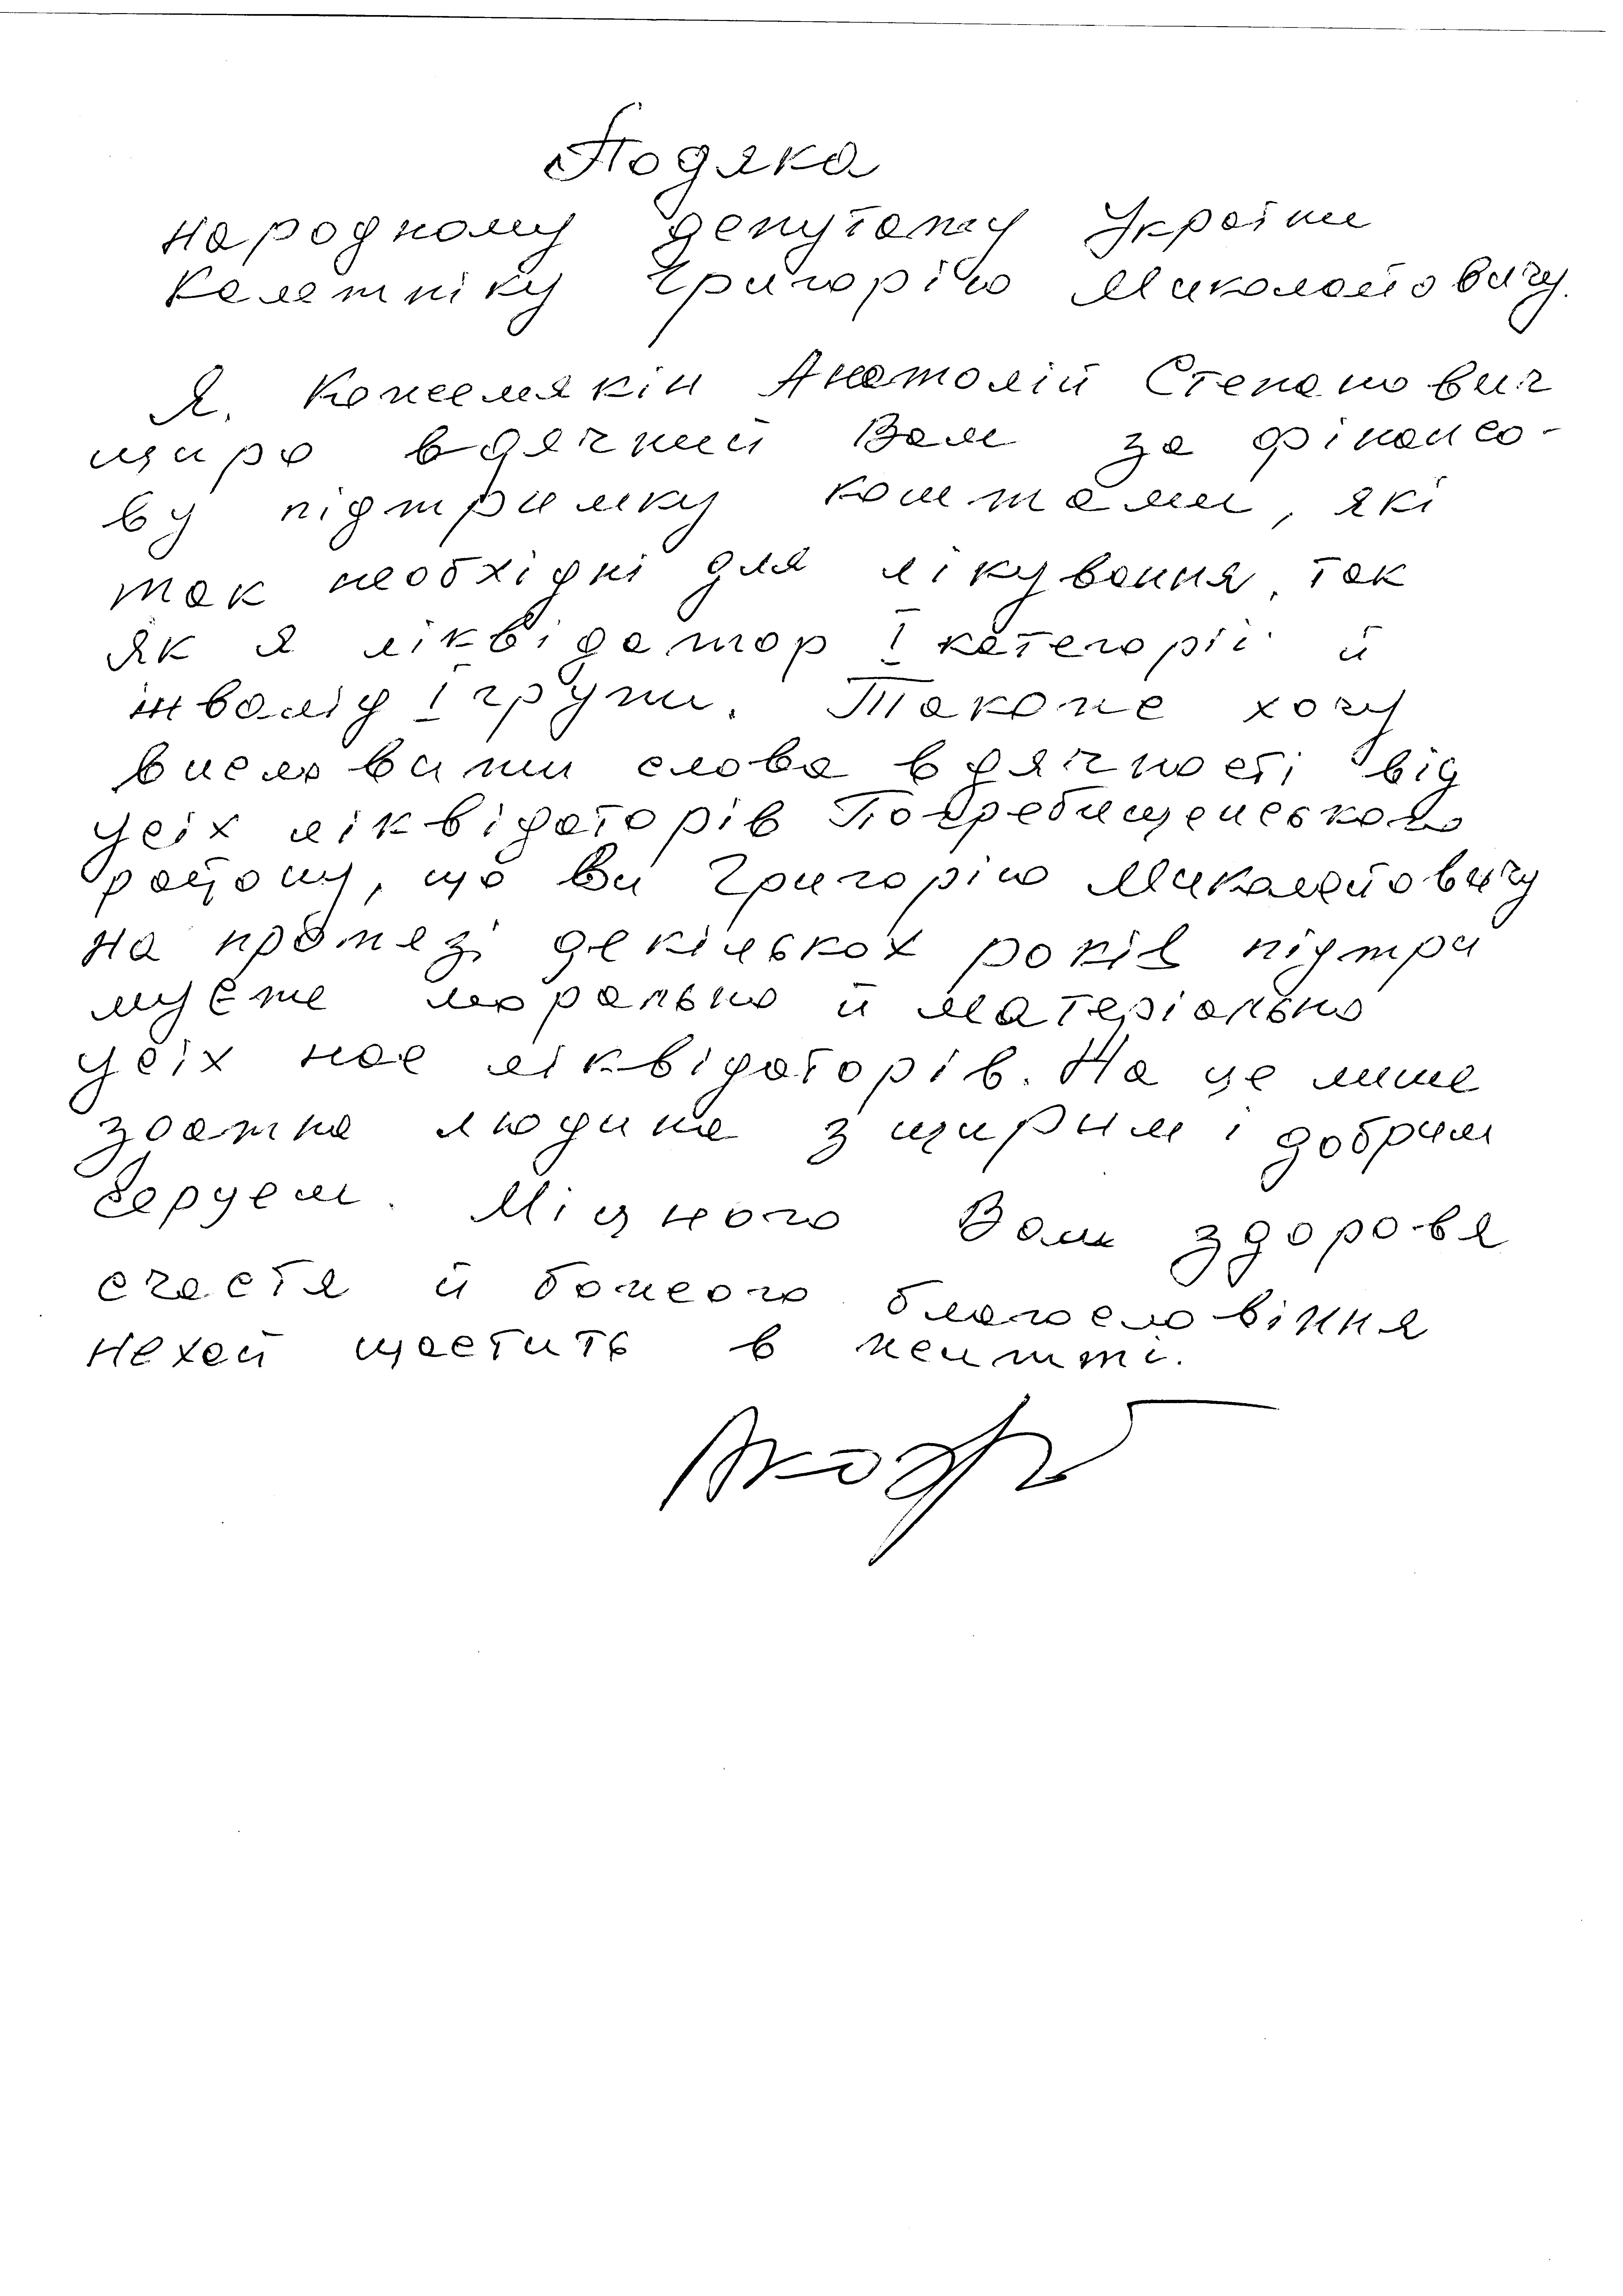 Подяка
народному депутату України
Калетніку Григорію Миколайовичу.
Я, Кожемякін Анатолій Степанович
щиро вдячний Вам за фінансо-
ву підтримку коштами, які
так необхідні для лікування, так
як я ліквідатор I категорії й
інвалід I групи. Також хочу
висловити слова вдячності від
усіх ліквідаторів Погребищенського
району, що Ви Григорію Миколайовичу
на протязі декількох років підтри
муєте морально й матеріально
усіх нас ліквідаторів. На це лише
здатна людина з щирим і добрим
серцем. Міцного Вам здоровя
счастя й божого благословіння
нехай щастить в житті.